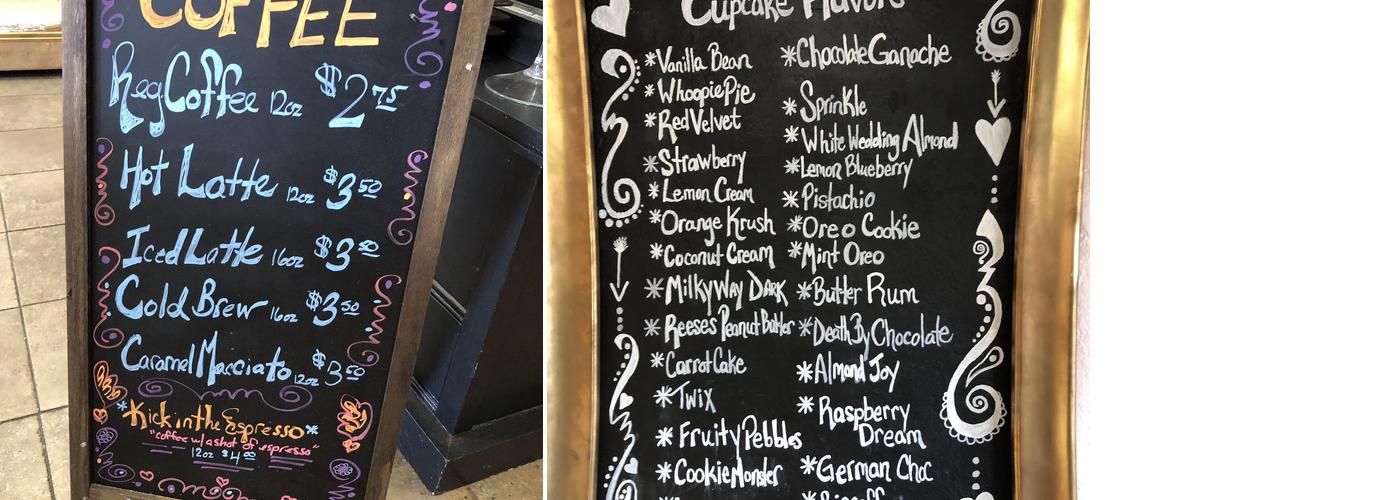 COFFEE
Reg Coffee 12oz $2.75
Hot Latte 12oz $3.50
Iced Latte 16oz $3.50
Cold Brew 16oz $3.50
Caramel Macciato 12oz $3.50
*Kick in the Espresso*
"coffee w/ a shot of espresso"
12oz $4.00
Cupcake Flavors
*Vanilla Bean
*Whoopie Pie
*Red Velvet
*Strawberry
*Lemon Cream
*Orange Krush
*Coconut Cream
*Milky Way Dark
*Reeses Peanut Butter
*Carrot Cake
*Twix
*Fruity Pebbles
*Cookie Monster
*Chocolate Ganache
*Sprinkle
*White Wedding Almond
*Lemon Blueberry
*Pistachio
*Oreo Cookie
*Mint Oreo
*Butter Rum
*Death By Chocolate
*Almond Joy
*Raspberry
Dream
*German Choc